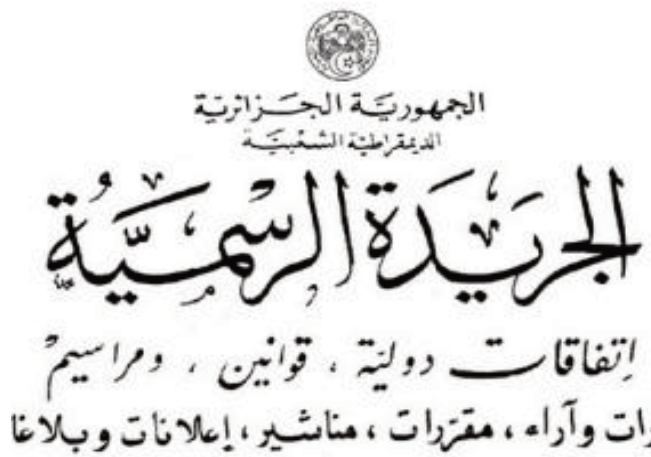 الجمهورية الجزائرية
الديمقراطية الشعبية
الجريدة الرسمية
إتفاقات دولية ، قوانين ، ومراسيم
رات وآراء ، مقررات ، مناشير ، إعلانات وبلاغا